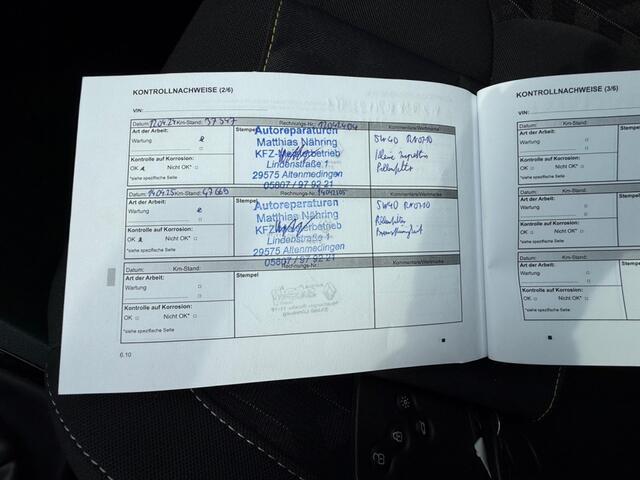 KONTROLLNACHWEISE (2/6)
VIN:
Datum: 12.04.24 Km-Stand: 37347 Rechnungs-Nr.: 12042404 Kommentare/Werkmarke
Art der Arbeit:
Wartung
Kontrolle auf Korrosion:
OK Nicht OK*
*siehe spezifische Seite
Stempel
Autoreparaturen
Matthias Nähring
KFZ-Meisterbetrieb
Lindenstraße 1
29575 Altenmedingen
05807 / 97 92 21
5W40 RN0710
Kleine Inspektion
Pollenfilter
Datum: 14.04.25 Km-Stand: 47669 Rechnungs-Nr.: 14042505 Kommentare/Werkmarke
Art der Arbeit:
Wartung
Kontrolle auf Korrosion:
OK Nicht OK*
*siehe spezifische Seite
Stempel
Autoreparaturen
Matthias Nähring
KFZ-Meisterbetrieb
Lindenstraße 1
29575 Altenmedingen
05807 / 97 92 21
5W40 RN0710
Pollenfilter
Bremsflüssigkeit
Datum: Km-Stand: Rechnungs-Nr.: Kommentare/Werkmarke
Art der Arbeit:
Wartung
Kontrolle auf Korrosion:
OK Nicht OK*
*siehe spezifische Seite
Stempel
6.10
KONTROLLNACHWEISE (3/6)
VIN:
Datum:
Art der Arbeit:
Wartung
Kontrolle auf Korrosion:
OK Nicht OK*
*siehe spezifische Seite
Datum:
Art der Arbeit:
Wartung
Kontrolle auf Korrosion:
OK Nicht OK*
*siehe spezifische Seite
Datum:
Art der Arbeit:
Wartung
Kontrolle auf Korrosion:
OK Nicht OK*
*siehe spezifische Seite